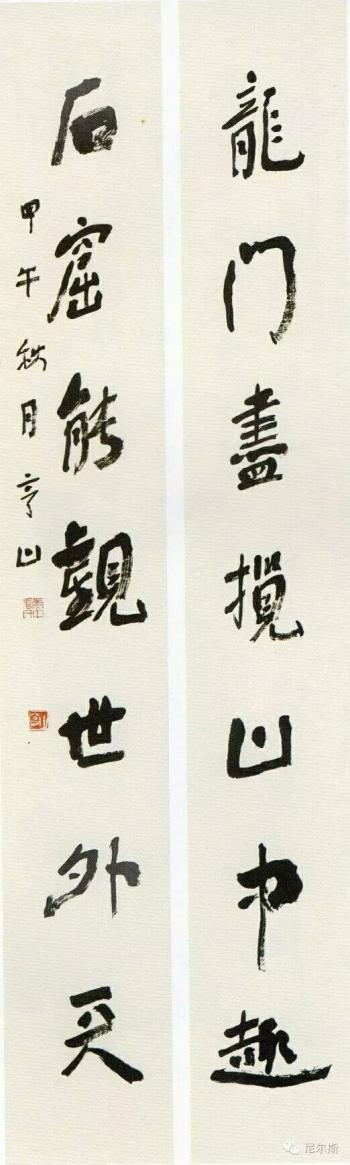 龍门盡攬山中趣
石窟能觀世外天
甲午秋月亨山
尼尔斯